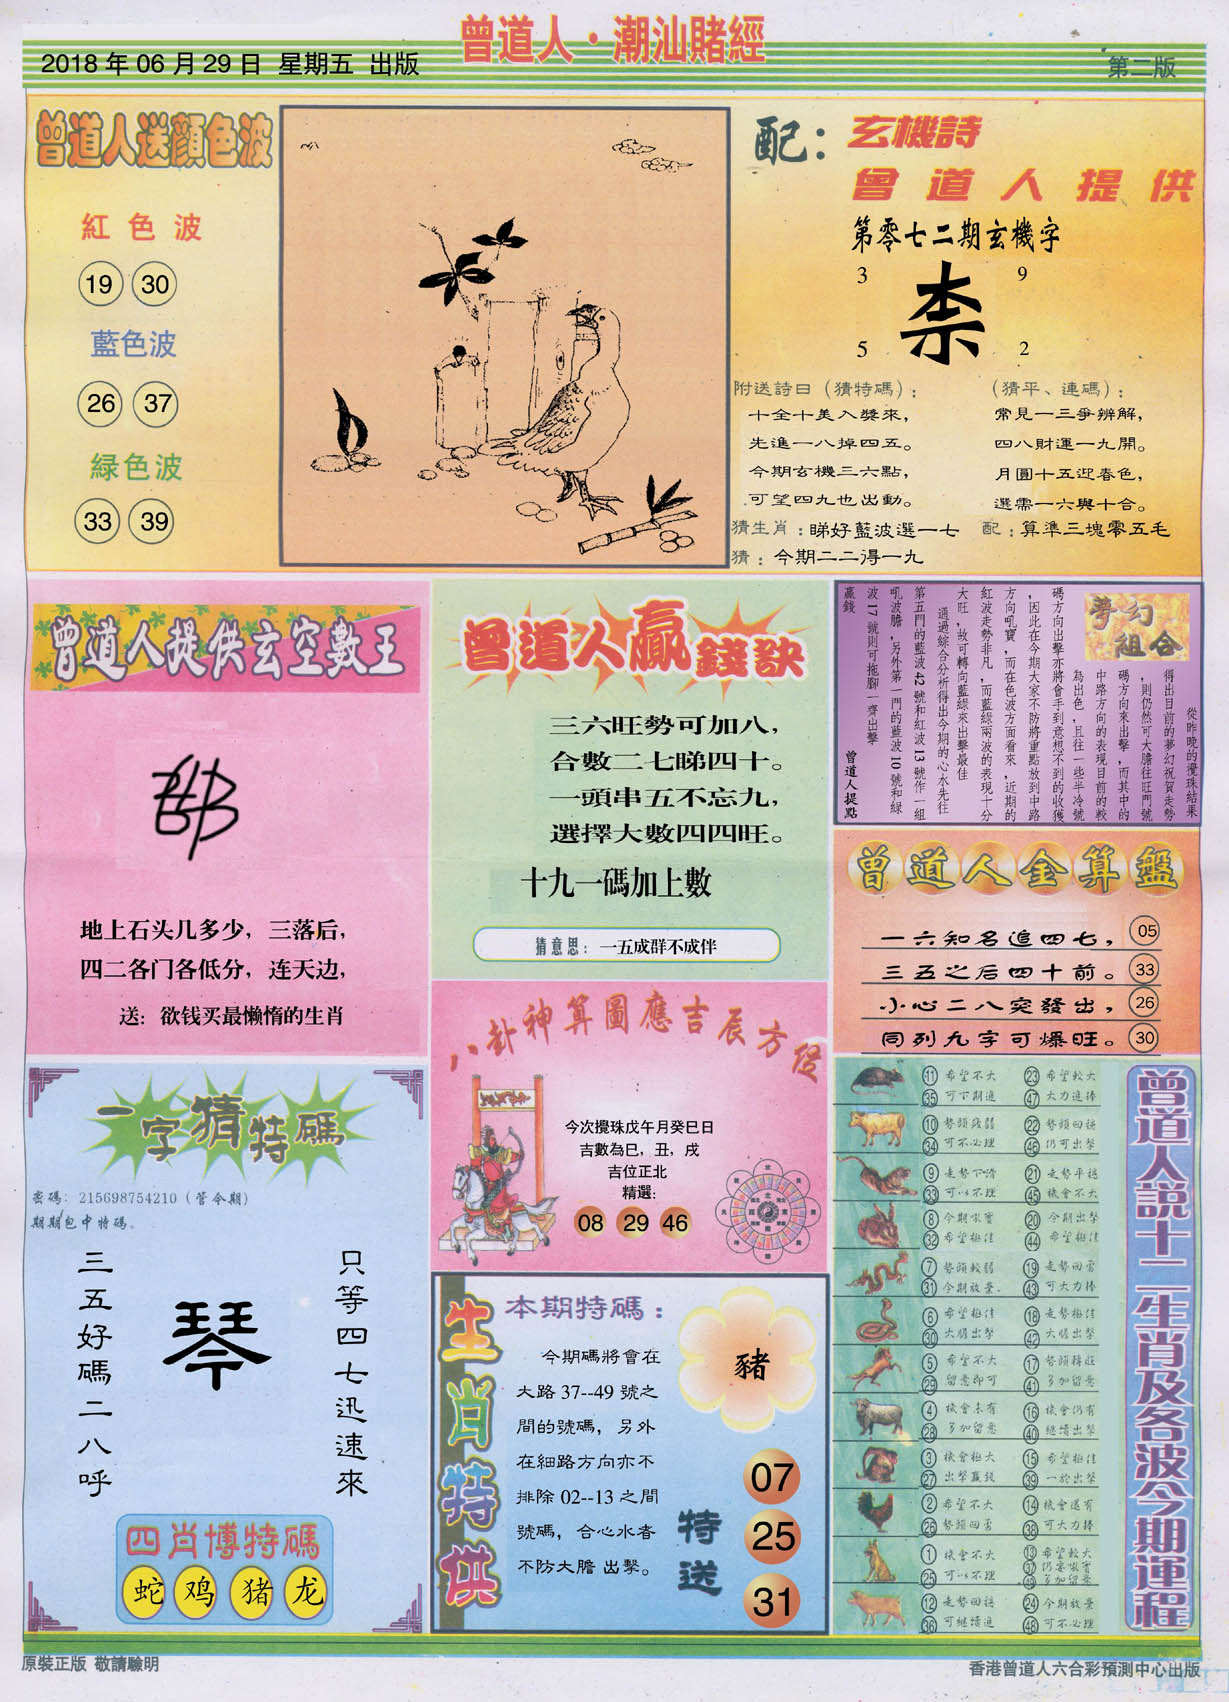 曾道人·潮汕賭經
2018 年 06 月 29 日 星期五 出版
第二版
曾道人送顏色波
紅色波
19 30
藍色波
26 37
緑色波
33 39
配：玄機詩
曾道人提供
第零七二期玄機字
3 9
5 2
附送詩曰（猜特碼）：
十全十美入獎來，
先進一八掉四五。
今期玄機三六點，
可望四九也出動。
（猜平、連碼）：
常見一三爭辨解，
四八財運一九開。
月圓十五迎春色，
選需一六與十合。
猜生肖：睇好藍波選一七
配：算準三塊零五毛
猜：今期二二得一九
曾道人提供玄空數王
地上石头几多少，三落后，
四二各门各低分，连天边，
送：欲钱买最懒惰的生肖
曾道人贏錢訣
三六旺勢可加八，
合數二七睇四十。
一頭串五不忘九，
選擇大數四四旺。
十九一碼加上數
猜意思：一五成群不成伴
夢幻組合
從昨晚的攪珠結果
得出目前的夢幻祝賀走勢
，則仍然可大膽往旺門號
碼方向來出擊，而其中的
中路方向的表現目前的較
為出色，且往一些半冷號
碼方向出擊亦將會手到意想不到的收獲
，因此在今期大家不防將重點放到中路
方向吼寶，而在色波方面看來，近期的
紅波走勢非凡，而藍綠兩波的表現十分
大旺，故可轉向藍綠來出擊最佳
通過綜合分析得出今期的心水先往
第五門的藍波42號和紅波13號作一組
吼波膽，另外第一門的藍波10號和綠
波17號則可拖腳一齊出擊
贏錢
曾道人提點
曾道人金算盤
一六知名追四七， 05
三五之后四十前。 33
小心二八突發出， 26
同列九字可爆旺。 30
八卦神算圖應吉辰方位
今次攪珠戊午月癸巳日
吉數為巳，丑，戌
吉位正北
精選：
08 29 46
一字猜特碼
密碼：215698754210（管令期）
期期包中特碼。
只等四七迅速來
琴
三五好碼二八呼
四肖博特碼
蛇 鸡 猪 龙
生肖特供
本期特碼：
今期碼將會在
大路 37--49 號之
間的號碼，另外
在細路方向亦不
排除 02--13 之間
號碼，合心水者
不防大膽 出擊。
豬
特送
07
25
31
曾道人説十二生肖及各波今期運程
11 希望不大 23 希望較大
35 可下期追 47 大力追捧
10 勢頭殘弱 22 勢頭回穩
34 可不必理 46 仍可出擊
9 走勢下滑 21 走勢平穩
33 可以不理 45 機會不大
8 今期吼寶 20 今期出擊
32 希望極佳 44 希望極佳
7 勢頭較弱 19 走勢回勇
31 今期放棄 43 可大力捧
6 希望極佳 18 走勢極佳
30 大膽出擊 42 大膽出擊
5 希望不大 17 勢頭轉旺
29 留意即可 41 多加留意
4 機會未有 16 機會仍有
28 多加留意 40 繼續出擊
3 機會極大 15 希望極佳
27 出擊贏錢 39 一於出擊
2 希望不大 14 機會還有
26 勢頭回勇 38 可大力捧
1 機會不大 13 希望較大
25 可以不理 37 仍要吼寶
49 多加留意
12 走勢回穩 24 今期放棄
36 可繼續追 48 可不必理
原裝正版 敬請驗明
香港曾道人六合彩預測中心出版